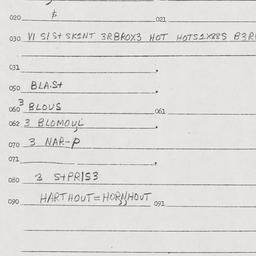 020 021
030 VI SIS+ SK1NT 3RBROX3 HOT HOTS1X88S B3R
031
050 BLAS+
060 3 BLOUS 061
062 3 BLOMOUL
070 3 NAR-P
071
080 3 S+PRIS3
090 HARTHOUT=HORNHOUT 091